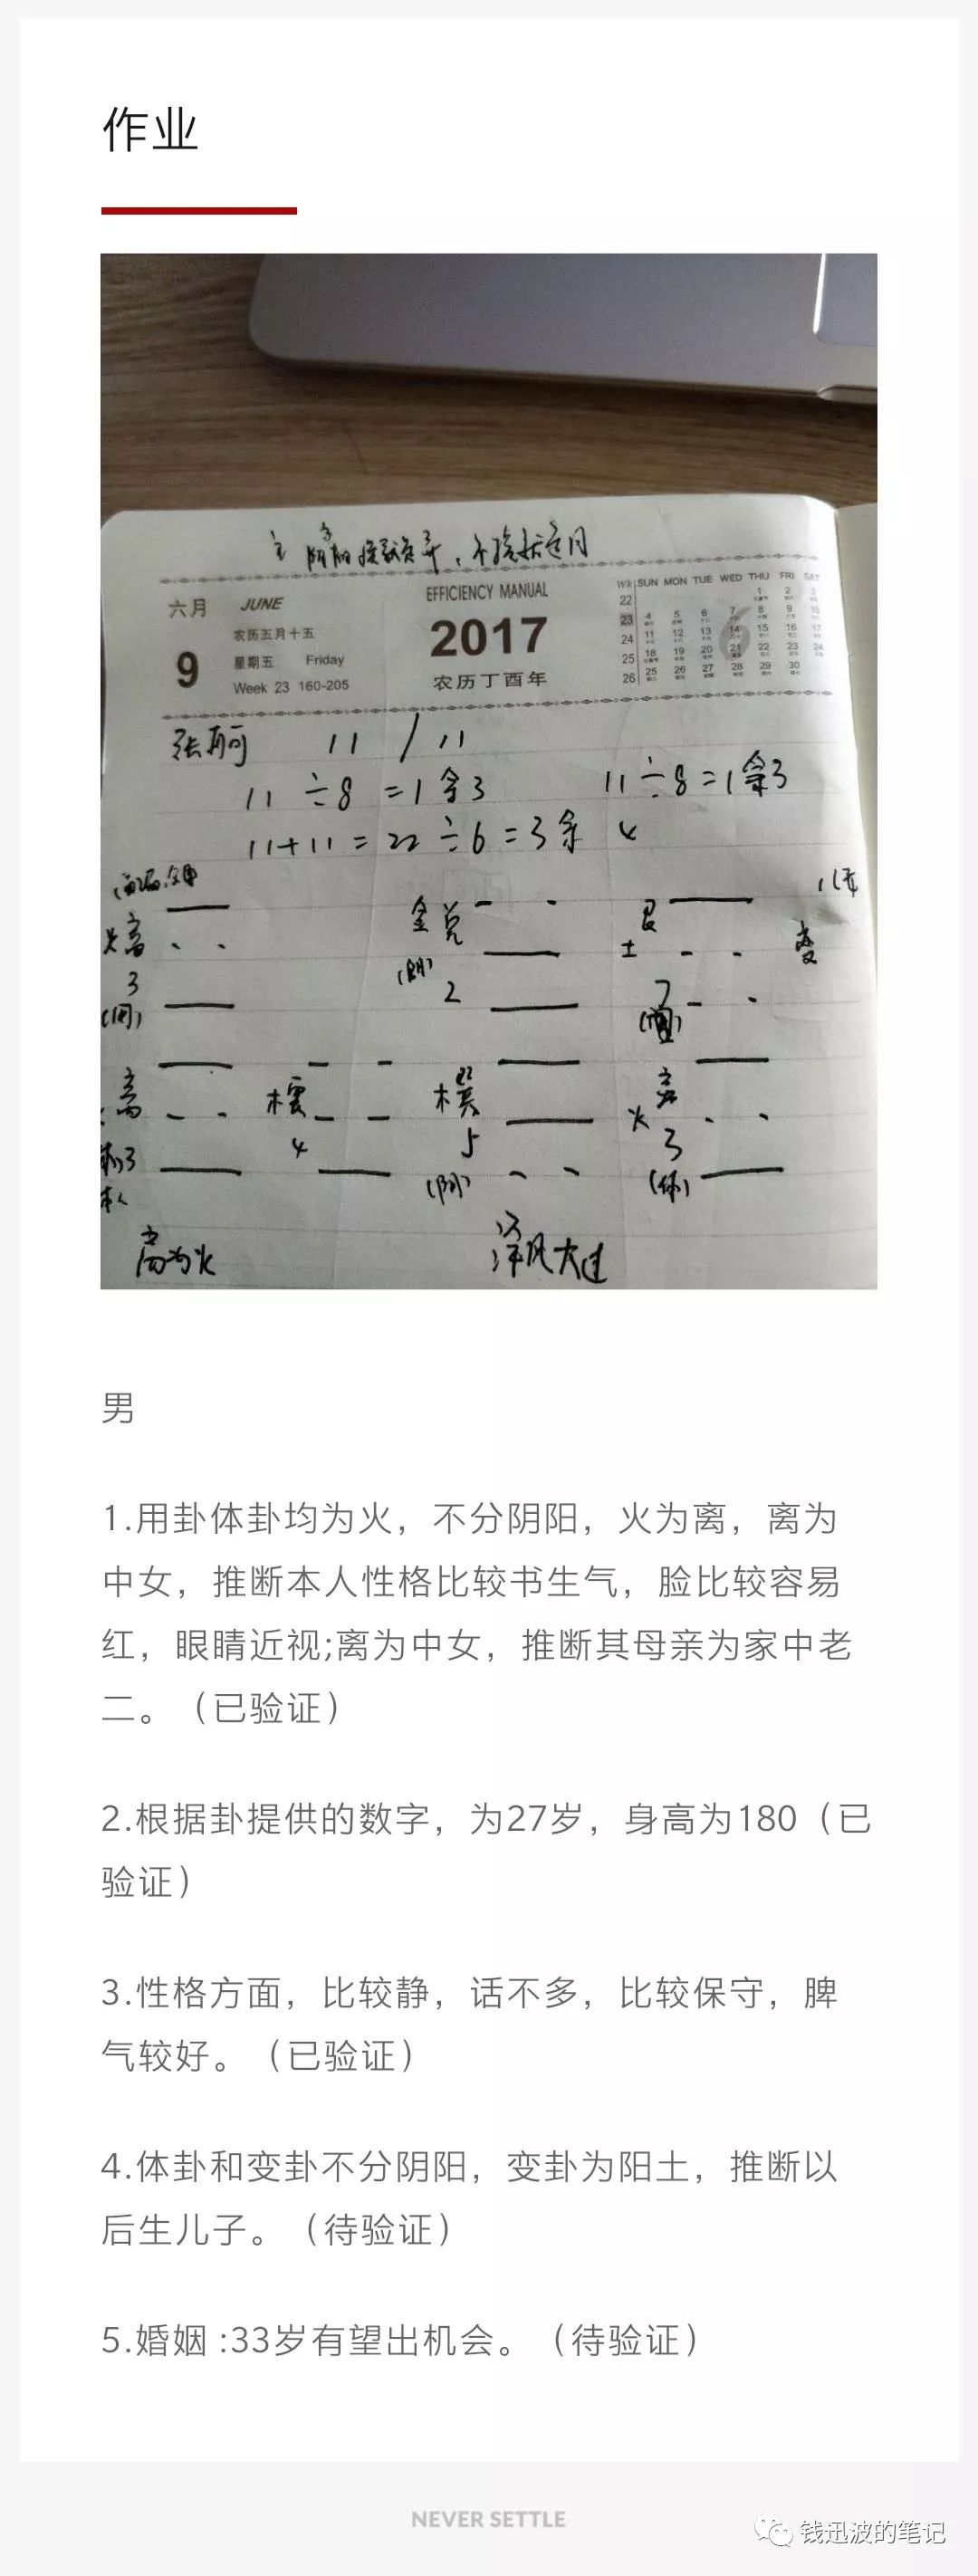 作业
六月 JUNE
9
农历五月十五
星期五 Friday
Week 23 160-205
EFFICIENCY MANUAL
2017
农历丁酉年
WK SUN MON TUE WED THU FRI SAT
22 1 2 3
23 4 5 6 7 8 9 10
24 11 12 13 14 15 16 17
25 18 19 20 21 22 23 24
26 25 26 27 28 29 30
6
11 / 11
11÷8=1余3 11÷8=1余3
11+11=22÷6=3余 4
火离 金兑 艮 变
土
3 2 7
离 木震 木巽 火离
3 4 5 3
本人
离为火 泽风大过
男
1.用卦体卦均为火，不分阴阳，火为离，离为
中女，推断本人性格比较书生气，脸比较容易
红，眼睛近视;离为中女，推断其母亲为家中老
二。（已验证）
2.根据卦提供的数字，为27岁，身高为180（已
验证）
3.性格方面，比较静，话不多，比较保守，脾
气较好。（已验证）
4.体卦和变卦不分阴阳，变卦为阳土，推断以
后生儿子。（待验证）
5.婚姻 :33岁有望出机会。（待验证）
NEVER SETTLE
钱迅波的笔记